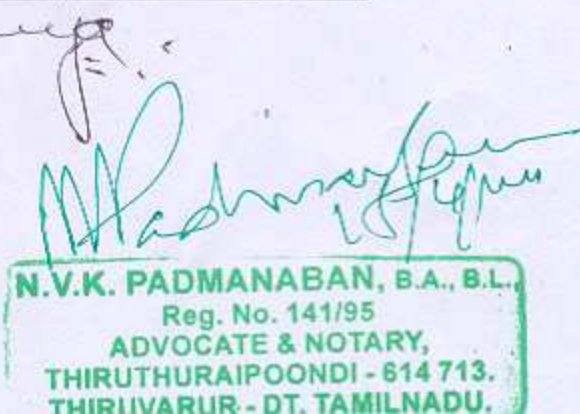 N.V.K. PADMANABAN, B.A., B.L.,
Reg. No. 141/95
ADVOCATE & NOTARY,
THIRUTHURAIPOONDI - 614 713.
THIRUVARUR - DT. TAMILNADU.